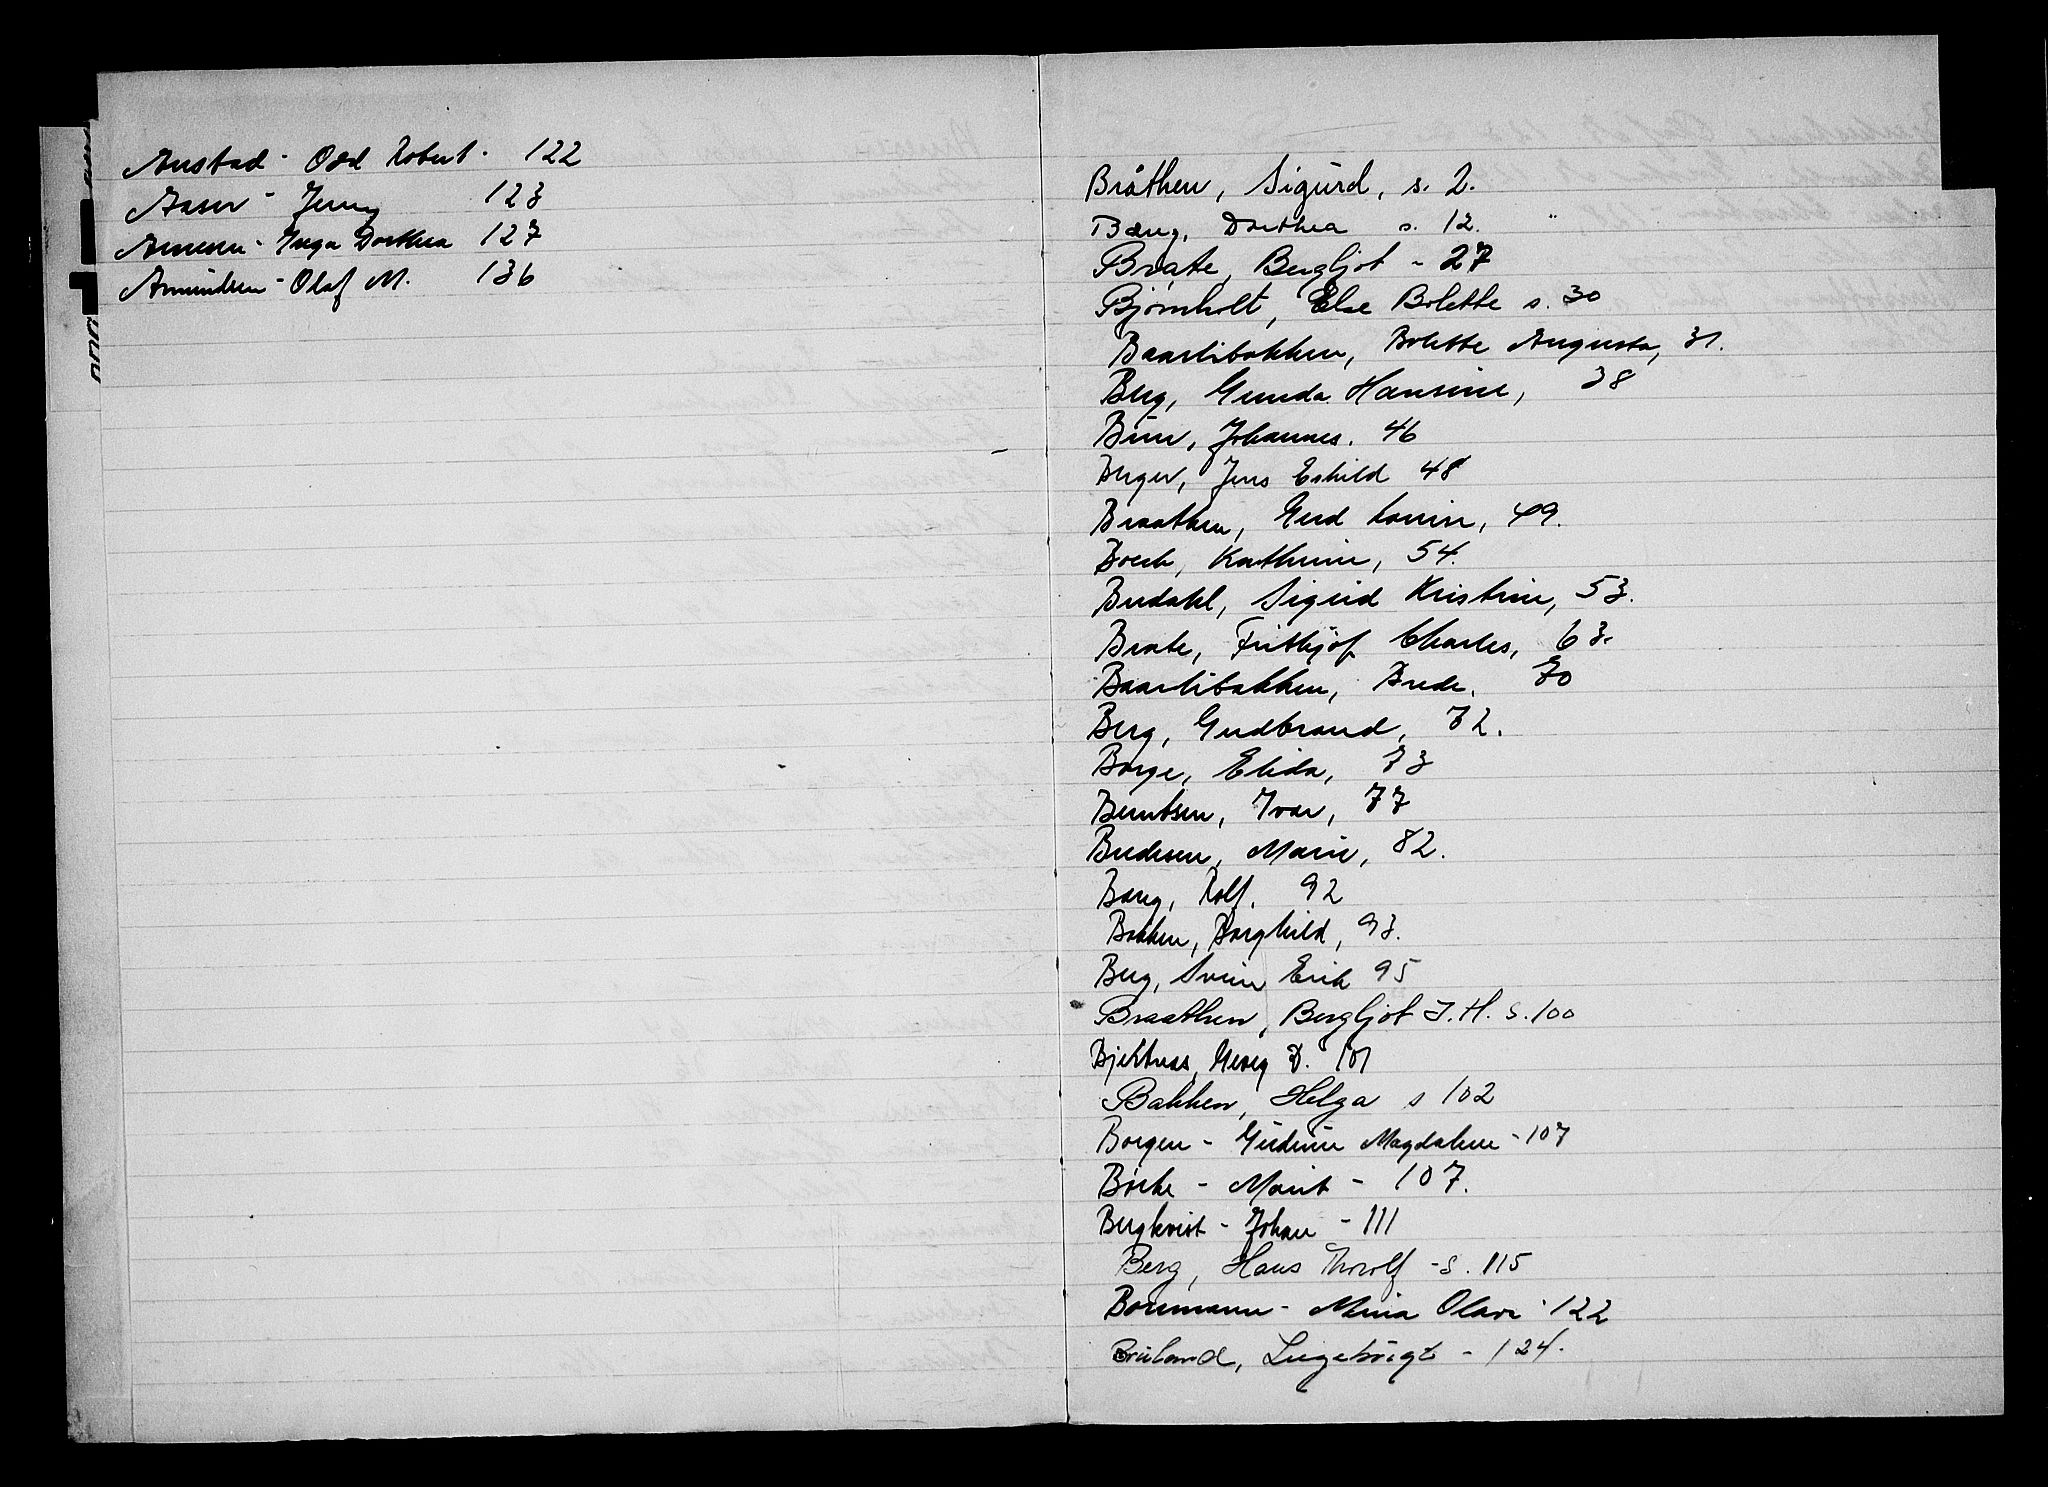 Anstad - Odd Robert - 122
Aaser - Jenny 123
Arnesen - Inga Dorthea 127
Amundsen - Olaf M. 136
Bråthen, Sigurd, s. 2.
Bæng, Dorthea s. 12.
Bråte, Bergljot - 27
Bjørnholt, Else Bolette s. 30
Baarlibakken, Bolette Augusta, 31.
Berg, Gunda Hansine, 38
Bun, Johannes. 46
Berger, Jens Eskild 48
Braathen, Gerd Lovise, 49.
Kathrine, 54.
Bredahl, Sigrid Kristine, 53.
Brate, Frithjof Charles, 63.
Baarlibakken, Brede, 70
Berg, Gudbrand, 72.
Borge, Elida, 73
Berntsen, Ivar, 77
Bredesen, Marie, 82.
Bæng, Rolf. 92
Bakken, Borghild, 93.
Berg, Svein Erik 95
Braathen, Bergljot J.H. s. 100
Georg D. 101
Bakken, Helga s 102
Borgen - Gudrun Magdalene - 107
Børke - Marit - 107.
Bergkvist - Johan - 111
Berg, Hans Thorolf - s. 115
Bornmann - Mina Olava - 122
Bruland, Ingebrigt - 124.